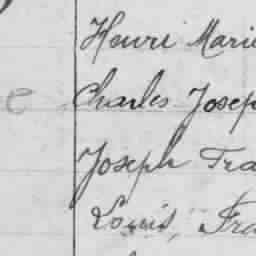 Henri Marie
Charles Josep
Joseph Fra
Louis, Fra